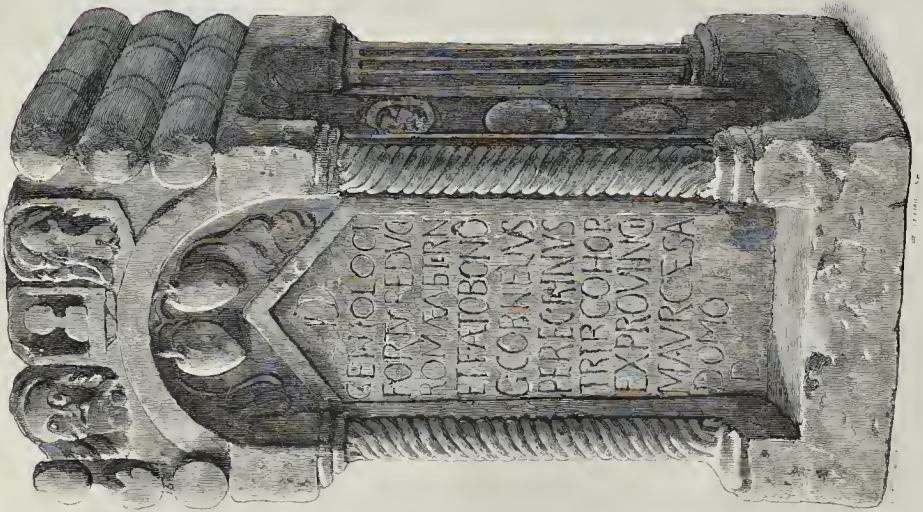 GENIOLOCI
FORTVNREDVC
ETFATOBONO
GCORNELIVS
PEREGRINVS
TRIBCOHOR
EXPROVINC
MAVRCÆSA
DOMO
D